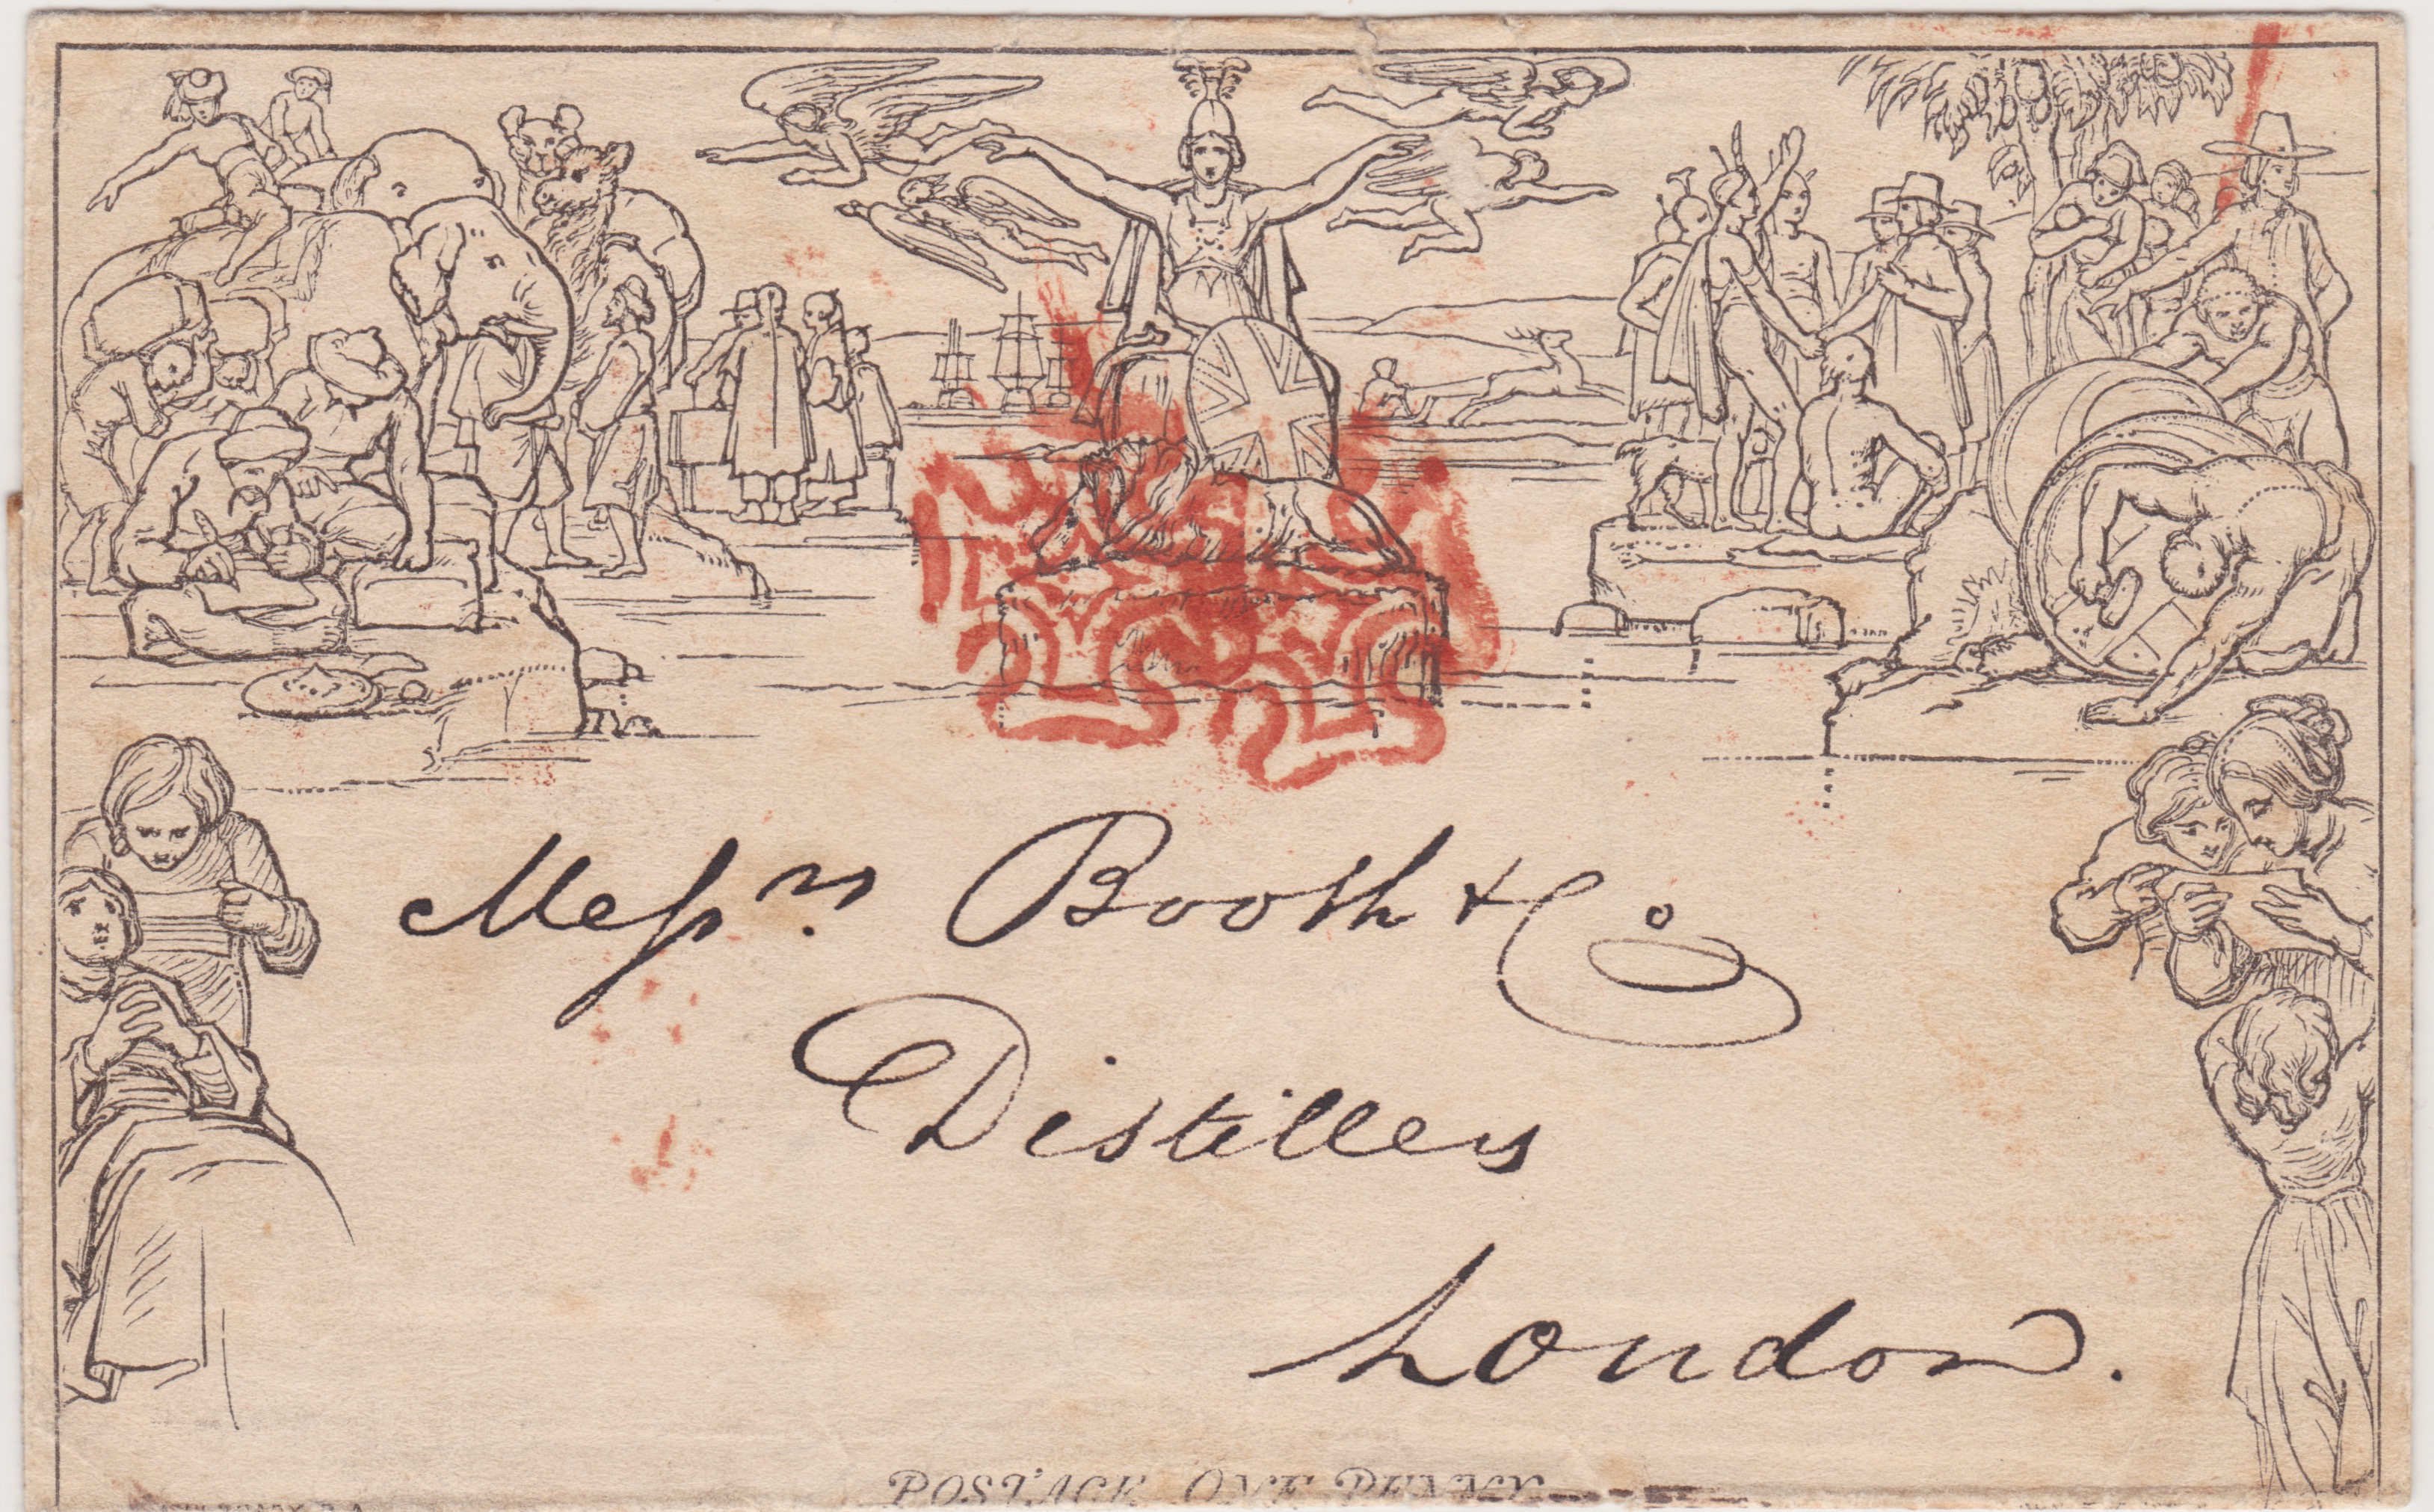 Messrs. Booth & Co
Distillers
London.
POSTAGE ONE PENNY